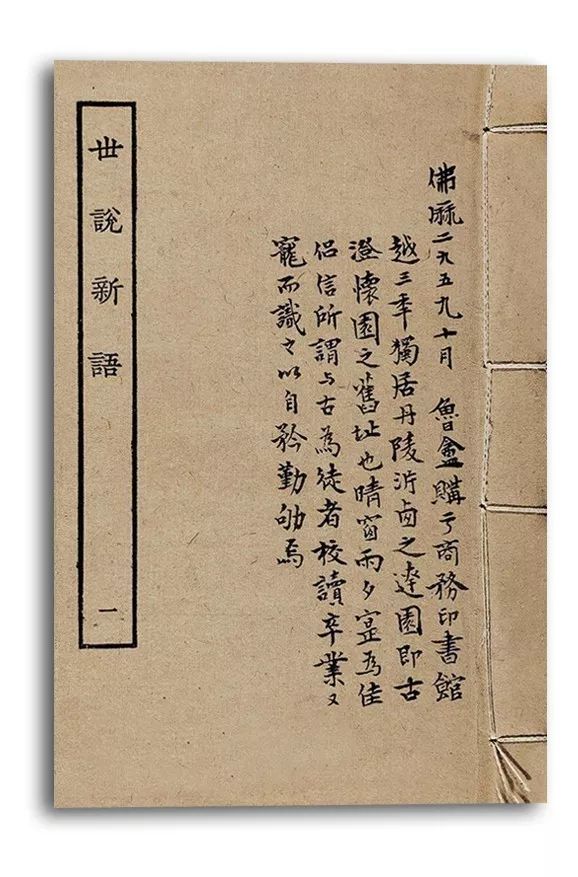 佛厤二九五九十月 魯盦購亏商務印書館
越三季獨居丹陵沜卥之達園即古
澄懷園之舊址也晴窗雨夕寔爲佳
侣信所謂与古為徒者校讀卒業又
寵而識之以自矜勤劬焉
世說新語
一